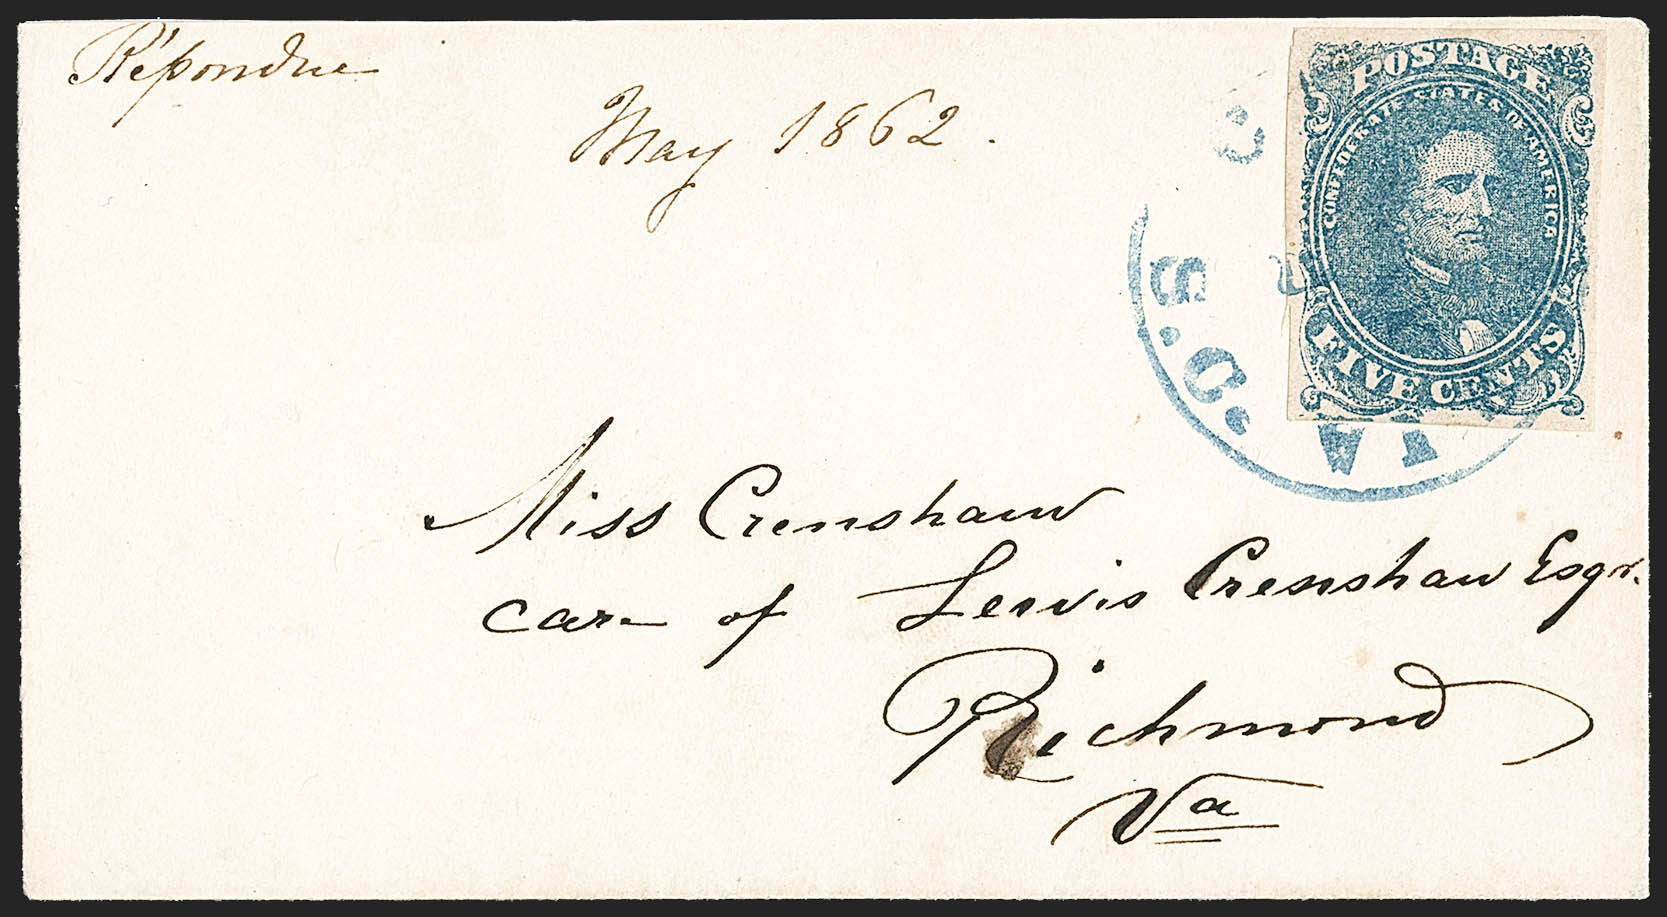 Répondue
May 1862.
POSTAGE
CONFEDERATE STATES OF AMERICA
FIVE CENTS
S.C.
IA
Miss Crenshaw
care of Lewis Crenshaw Esqr.
Richmond
Va